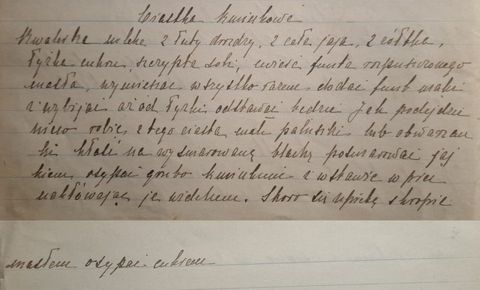 Ciastka kminkowe
Kwaterka mleka 2 łuty drożdży, 2 całe jaja, 2 żółtka,
łyżka cukru, szczypta soli, ćwierć funta rozpuszczonego
masła, wymieszać wszystko razem dodać funt mąki
i wybijać aż od łyżki odstawać będzie Jak podejdzie
nieco robić, z tego ciasta, małe paluszki lub obwarzan
ki kłaść na wysmarowaną blachę posmarować jaj
kiem osypać grubo kminkiem i wstawić w piec
nakłówając je widelcem. Skoro się upieką skropić
masłem osypać cukrem